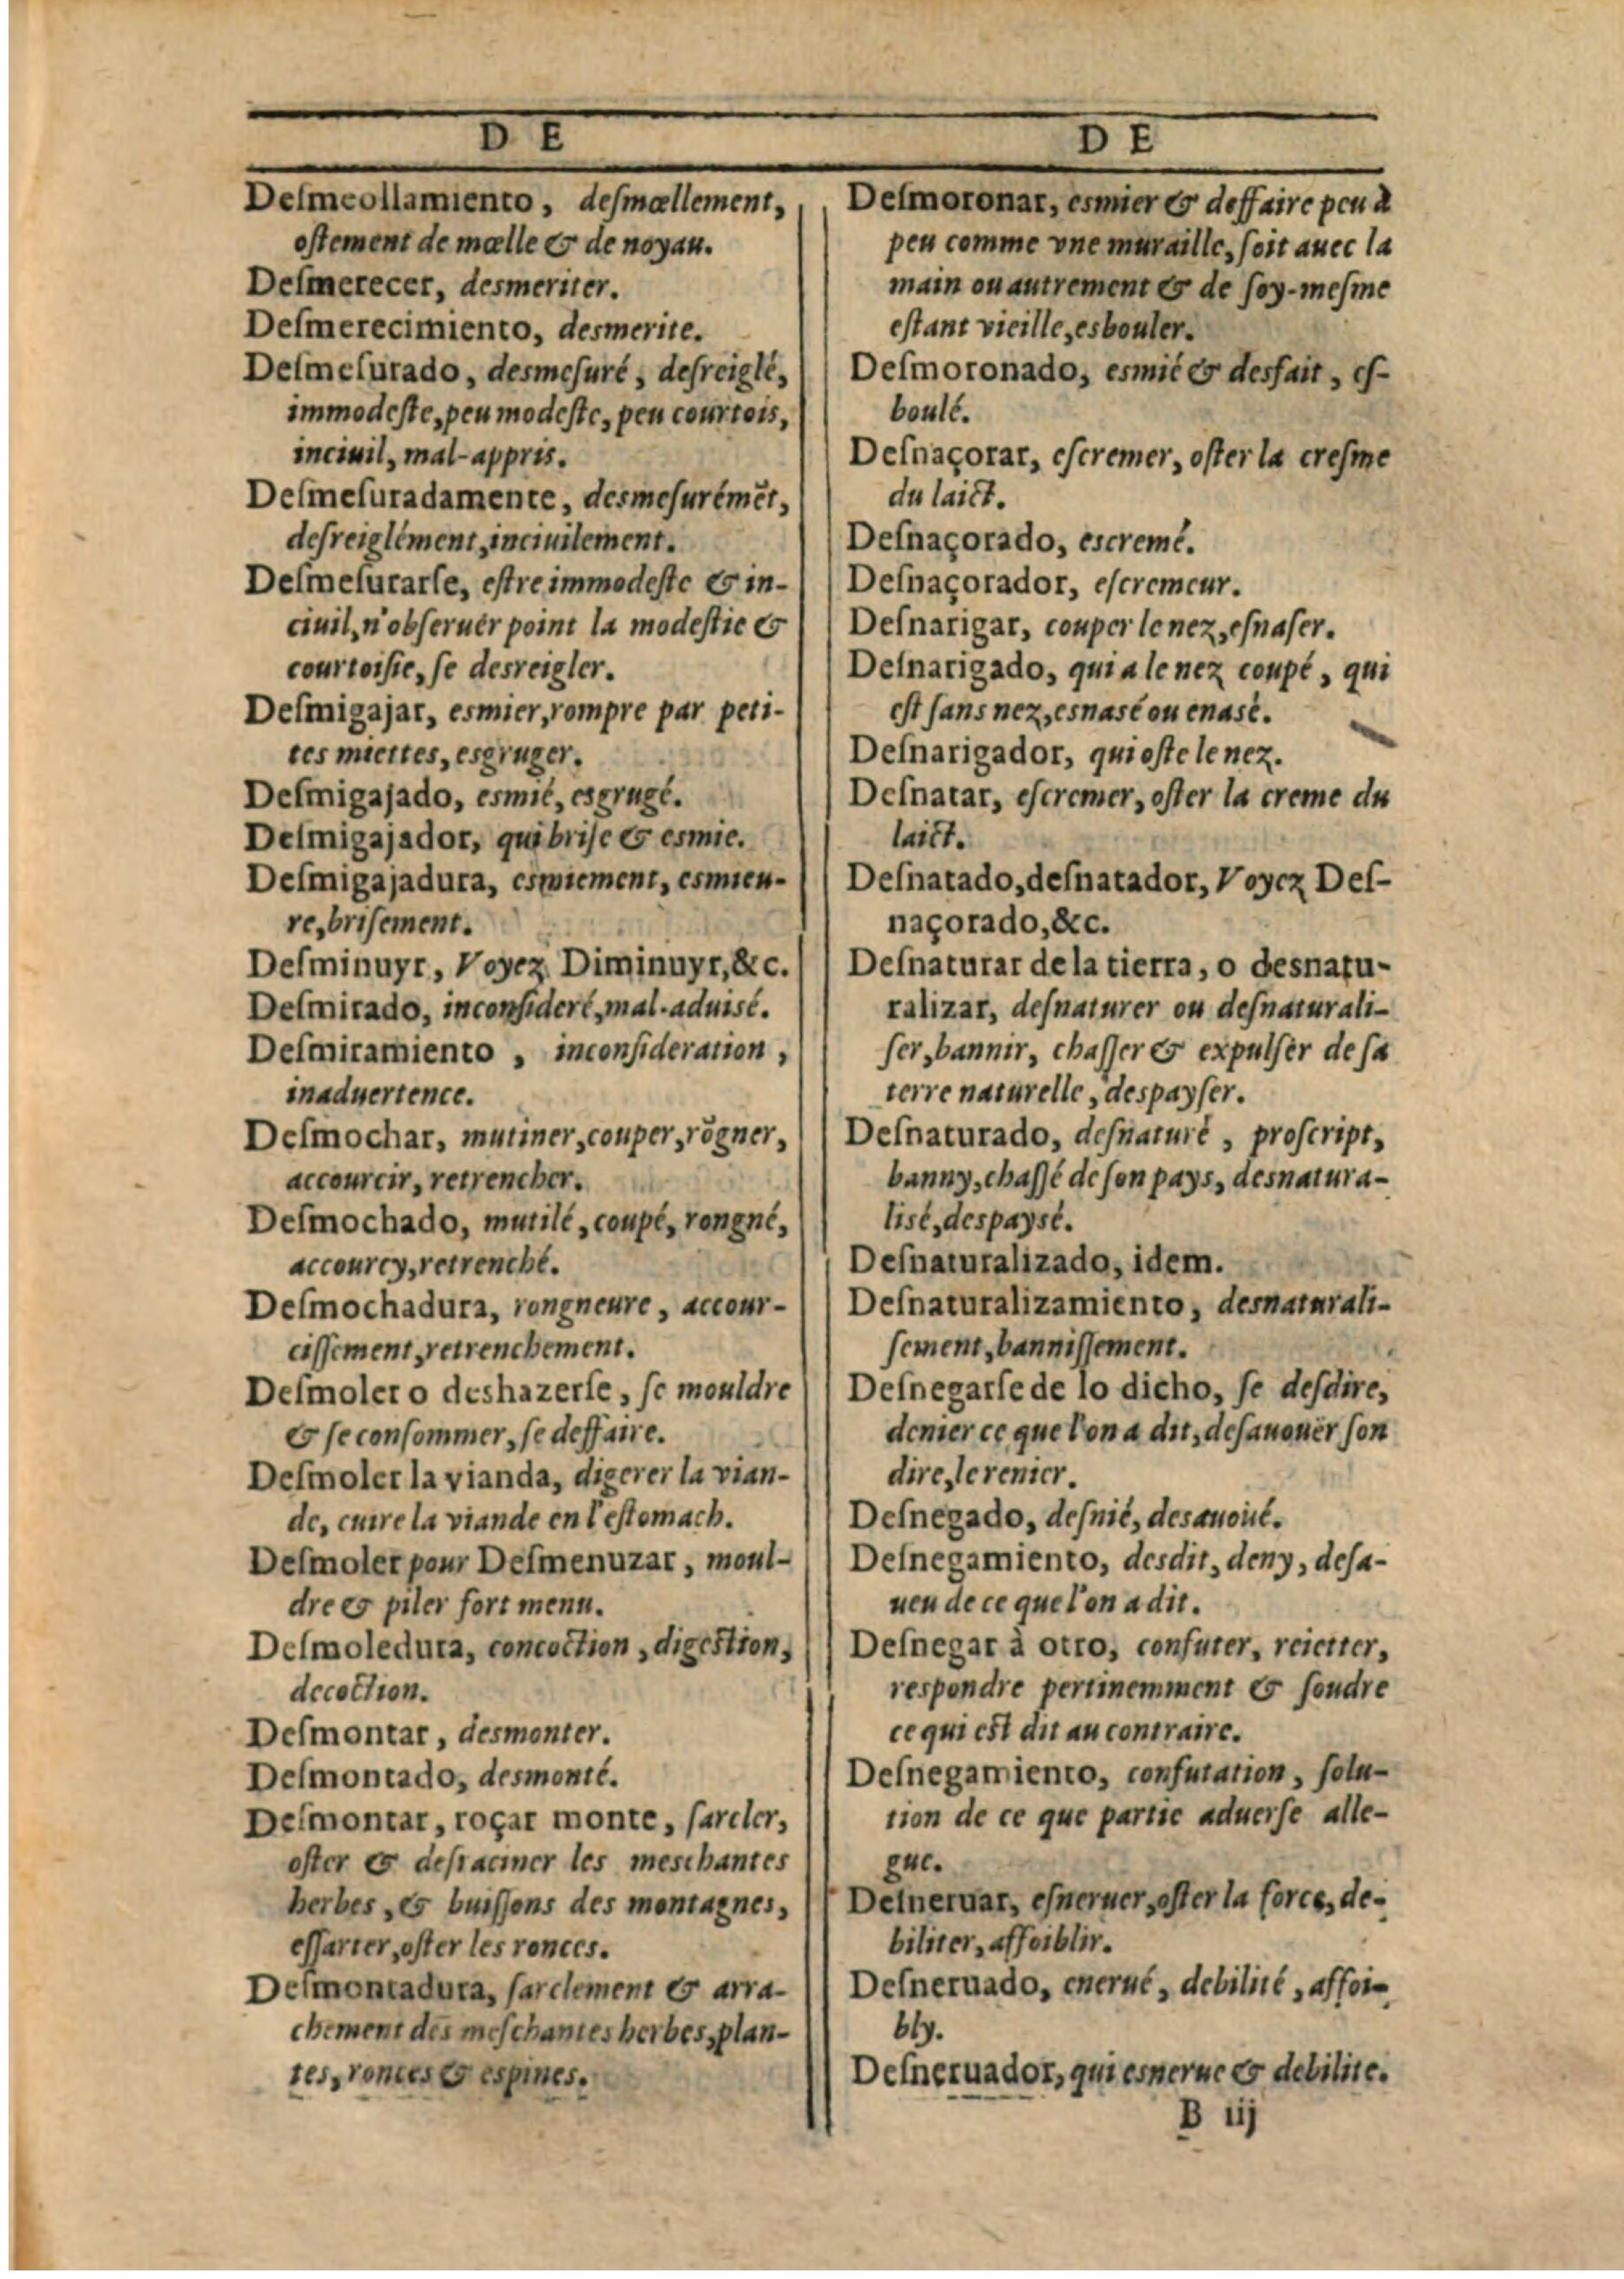 D E
Deſmeollamiento, deſmœllement,
oſtement de mœlle & de noyau.
Deſmerecer, desmeriter.
Deſmerecimiento, desmerite.
Deſmeſurado, desmeſuré, deſreiglé,
immodeſte, peu modeſte, peu courtois,
inciuil, mal-appris.
Deſmeſuradamente, desmeſurémẽt,
deſreiglément, inciuilement.
Deſmeſurarſe, eſtre immodeſte & in-
ciuil, n'obſeruer point la modeſtie &
courtoiſie, ſe desreigler.
Deſmigajar, esmier, rompre par peti-
tes miettes, esgruger.
Deſmigajado, esmié, esgrugé.
Deſmigajador, qui briſe & esmie.
Deſmigajadura, esmiement, esmieu-
re, briſement.
Deſminuyr, Voyez Diminuyr, &c.
Deſmirado, inconſideré, mal-aduisé.
Deſmiramiento, inconſideration,
inaduertence.
Deſmochar, mutiner, couper, rõgner,
accourcir, retrencher.
Deſmochado, mutilé, coupé, rongné,
accourcy, retrenché.
Deſmochadura, rongneure, accour-
ciſſement, retrenchement.
Deſmoler o deshazerſe, ſe mouldre
& ſe conſommer, ſe deffaire.
Deſmoler la vianda, digerer la vian-
de, cuire la viande en l'eſtomach.
Deſmoler pour Deſmenuzar, moul-
dre & piler fort menu.
Deſmoledura, concoction, digeſtion,
decoction.
Deſmontar, desmonter.
Deſmontado, desmonté.
Deſmontar, roçar monte, ſarcler,
oſter & deſraciner les meschantes
herbes, & buiſſons des montagnes,
eſſarter, oſter les ronces.
Deſmontadura, ſarclement & arra-
chement des meſchantes herbes, plan-
tes, ronces & espines.
D E
Deſmoronar, esmier & deffaire peu à
peu comme vne muraille, ſoit auec la
main ou autrement & de ſoy-meſme
eſtant vieille, esbouler.
Deſmoronado, esmié & desfait, eſ-
boulé.
Deſnaçorar, eſcremer, oſter la creſme
du laict.
Deſnaçorado, escremé.
Deſnaçorador, eſcremeur.
Deſnarigar, couper le nez, eſnaſer.
Deſnarigado, qui a le nez coupé, qui
eſt ſans nez, esnasé ou enasé.
Deſnarigador, qui oſte le nez.
Deſnatar, eſcremer, oſter la creme du
laict.
Deſnatado, deſnatador, Voyez Deſ-
naçorado, &c.
Deſnaturar de la tierra, o desnatu-
ralizar, deſnaturer ou deſnaturali-
ſer, bannir, chaſſer & expulſer de ſa
terre naturelle, despayſer.
Deſnaturado, deſnaturé, proſcript,
banny, chaſſé de ſon pays, desnatura-
lisé, despaysé.
Deſnaturalizado, idem.
Deſnaturalizamiento, desnaturali-
ſement, banniſſement.
Deſnegarſe de lo dicho, ſe deſdire,
denier ce que l'on a dit, deſauouër ſon
dire, le renier.
Deſnegado, deſnié, desauoüé.
Deſnegamiento, desdit, deny, deſa-
ueu de ce que l'on a dit.
Deſnegar à otro, confuter, reietter,
respondre pertinemment & ſoudre
ce qui eſt dit au contraire.
Deſnegamiento, confutation, ſolu-
tion de ce que partie aduerſe alle-
gue.
Deſneruar, eſneruer, oſter la force, de-
biliter, affoiblir.
Deſneruado, enerué, debilité, affoi-
bly.
Deſneruador, qui esnerue & debilite.
B iij